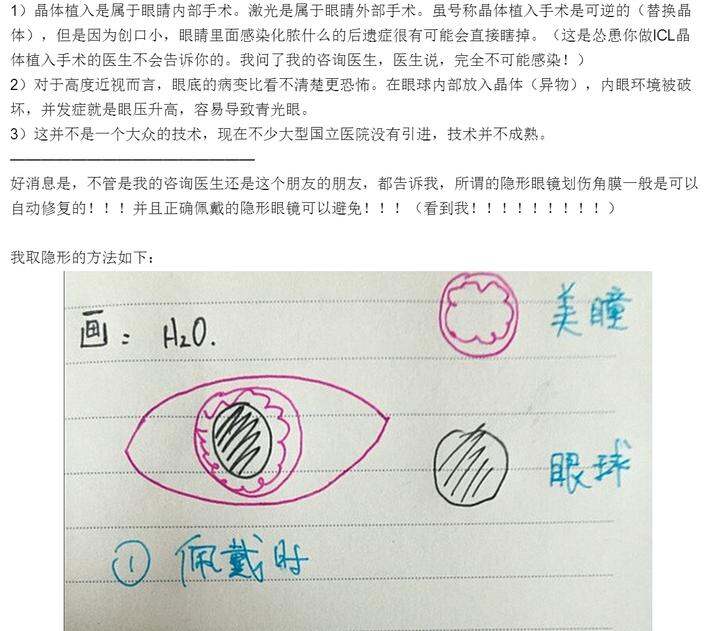 1）晶体植入是属于眼睛内部手术。激光是属于眼睛外部手术。虽号称晶体植入手术是可逆的（替换晶
体），但是因为创口小，眼睛里面感染化脓什么的后遗症很有可能会直接瞎掉。（这是怂恿你做ICL晶
体植入手术的医生不会告诉你的。我问了我的咨询医生，医生说，完全不可能感染！）
2）对于高度近视而言，眼底的病变比看不清楚更恐怖。在眼球内部放入晶体（异物），内眼环境被破
坏，并发症就是眼压升高，容易导致青光眼。
3）这并不是一个大众的技术，现在不少大型国立医院没有引进，技术并不成熟。
好消息是，不管是我的咨询医生还是这个朋友的朋友，都告诉我，所谓的隐形眼镜划伤角膜一般是可以
自动修复的！！！并且正确佩戴的隐形眼镜可以避免！！！（看到我！！！！！！！！！）
我取隐形的方法如下：
画：H₂O.
美瞳
眼球
① 佩戴时